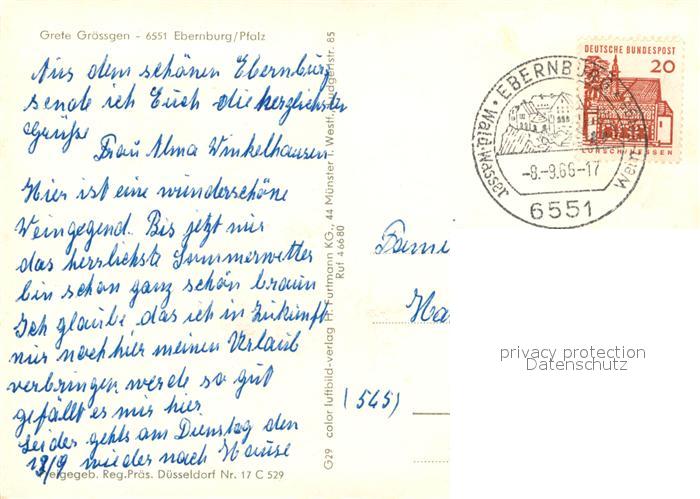 Grete Grössgen - 6551 Ebernburg/Pfalz
Aus dem schönen Ebernburg
sende ich Euch die herzlichsten
Grüße
Frau Alma Winkelhausen
Hier ist eine wunderschöne
Weingegend. Bis jetzt nur
das herrlichste Sommerwetter
bin schon ganz schön braun
Ich glaube das ich in Zukunft
nur noch hier meinen Urlaub
verbringen werde so gut
gefällt es mir hier
Leider gehts am Dienstag den
13/9 wieder nach Hause
Freigegeb. Reg.Präs. Düsseldorf Nr. 17 C 529
G29 color luftbild-verlag H. Furtmann KG., 44 Münster i. Westf.
Ruf 46680
DEUTSCHE BUNDESPOST
20
EBERNBURG
Wald Wasser Wein
-8.-9.66-17
6551
Fami
Ha
(545)
privacy protection
Datenschutz